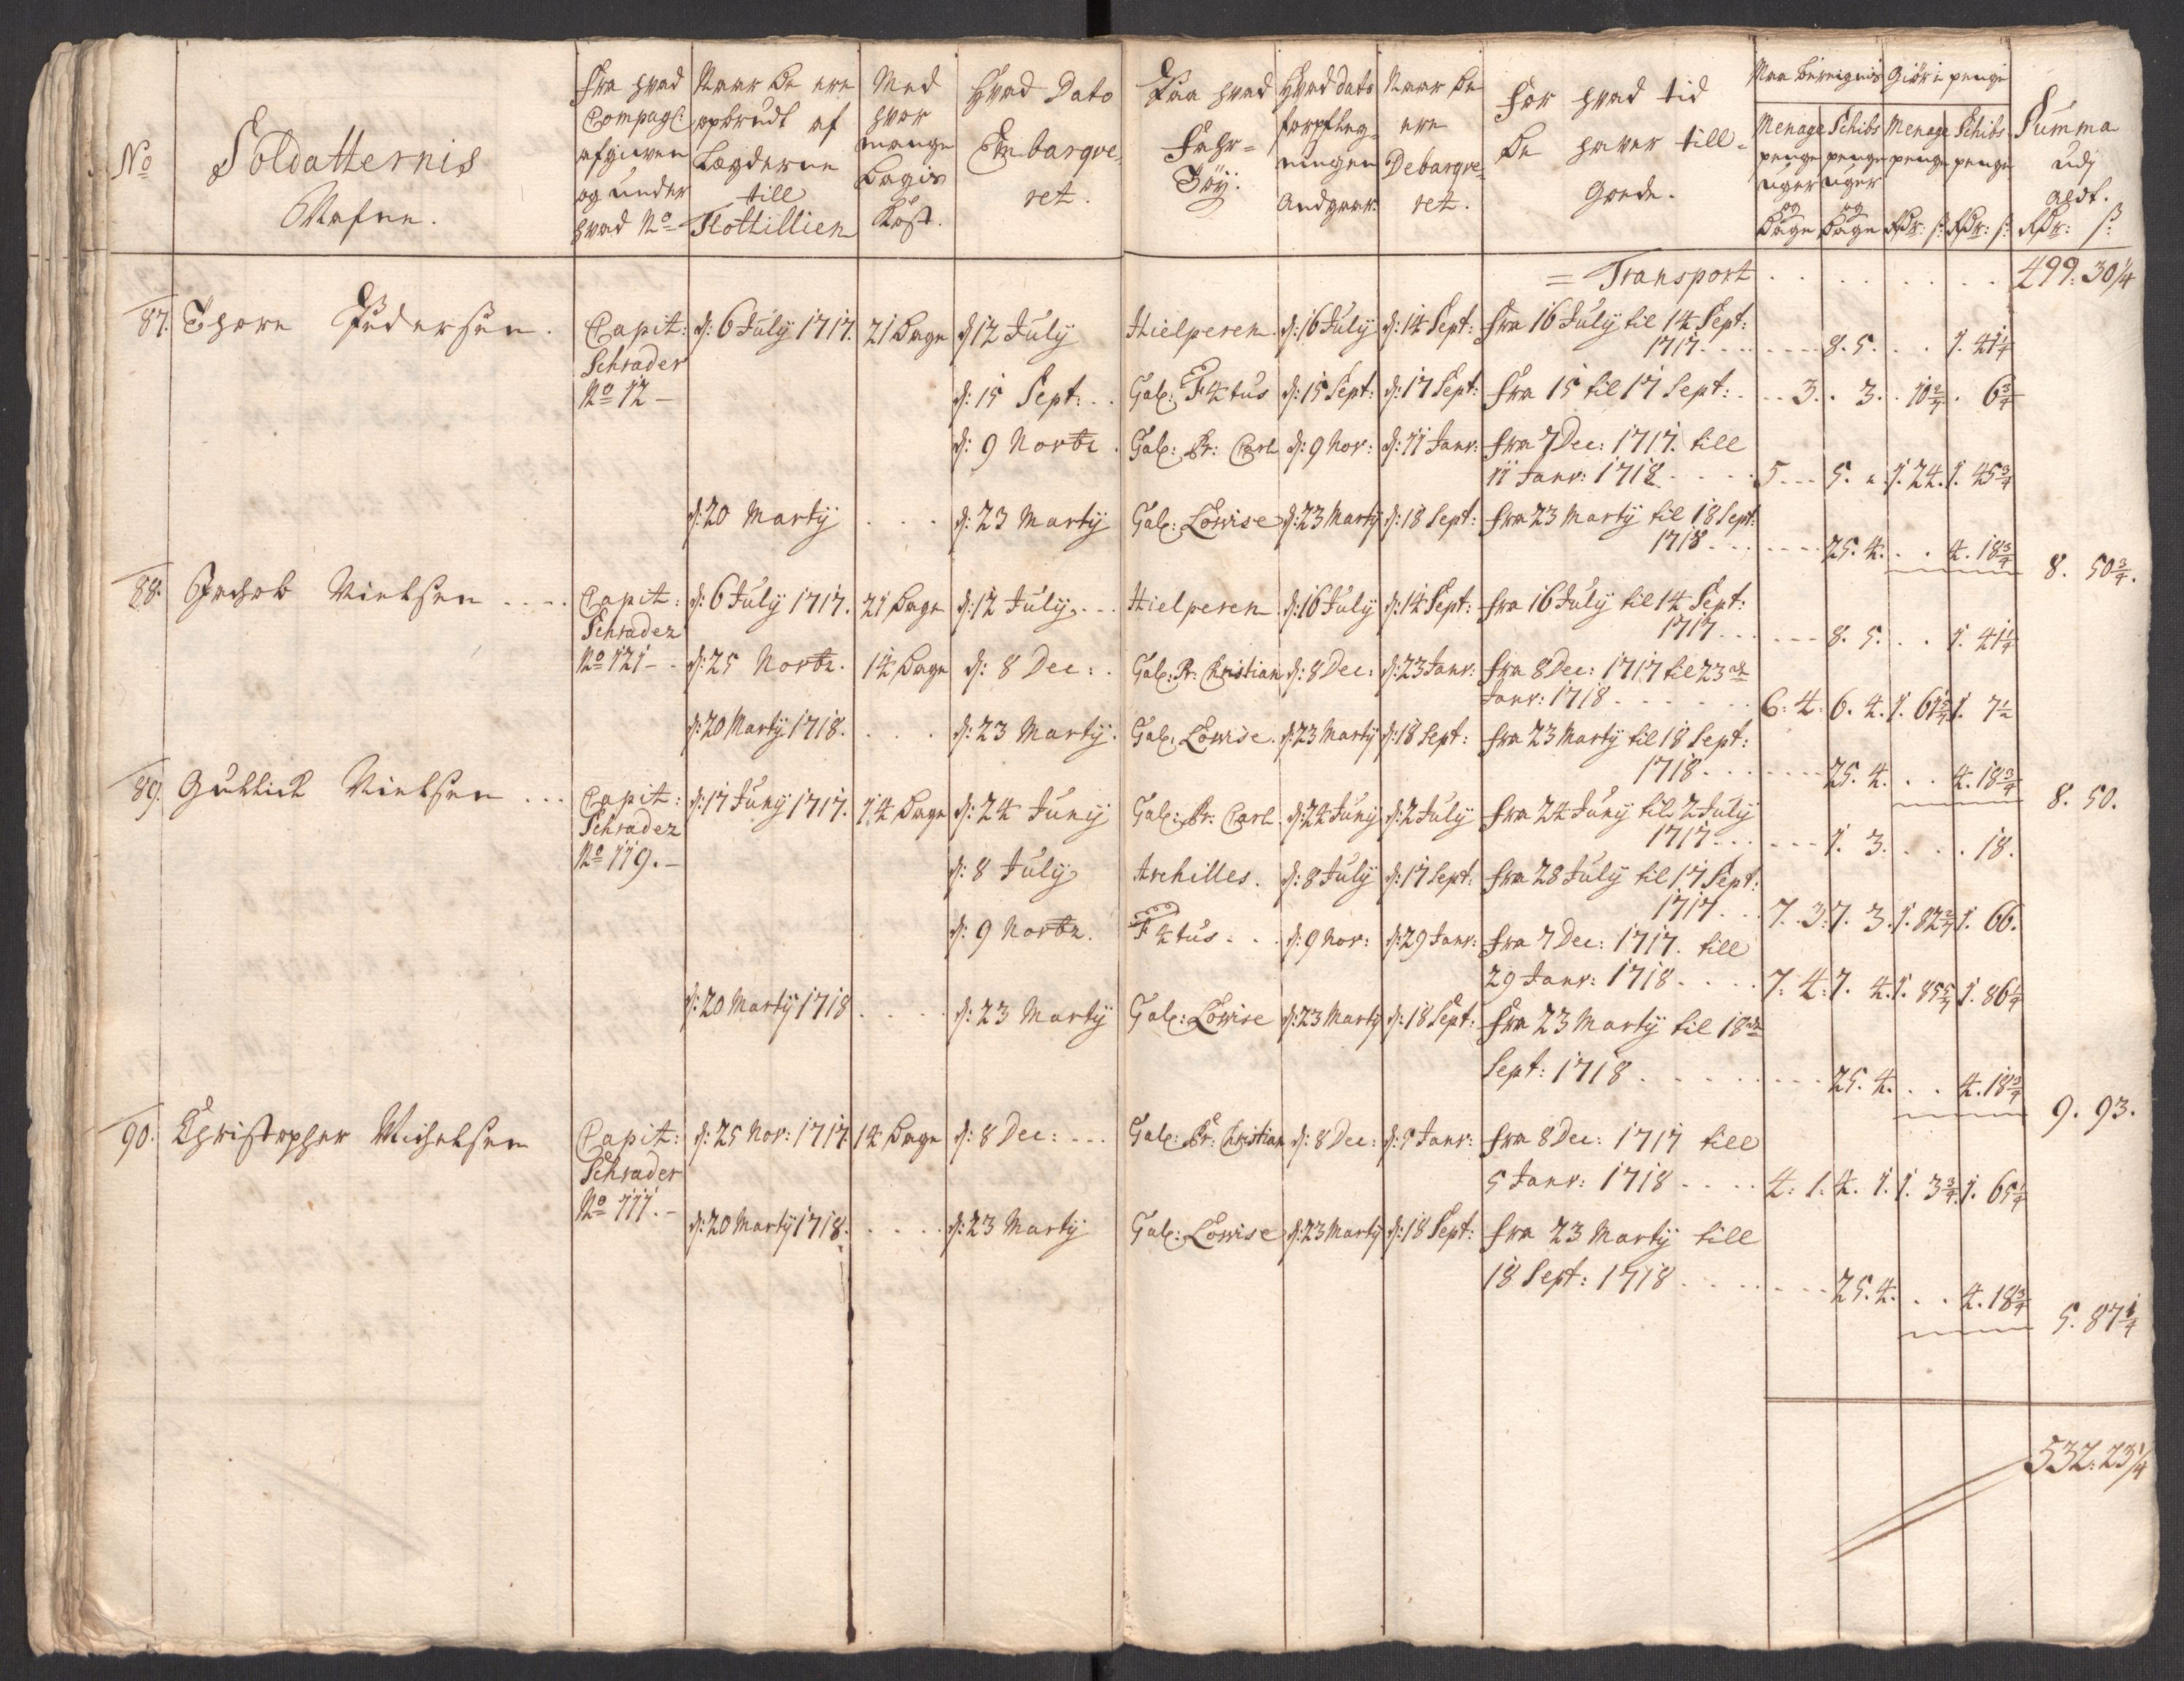 No
Soldatternis
Nafne.
Fra hvad
Compagl:
afgiven
og under
hvad No
Naar de ere
opbrudt af
Lægderne
till
Flottillien
Med
hvor
mange
Dagis
Kost.
Hvad Dato
Embarqve-
ret.
Paa hvad
Fahr-
Töy.
Hvad dato
forpfleg-
ningen
Andgaar:
Naar De
ere
Debarqve-
ret.
For hvad tid
De haver till-
Gode.
Giör i penge
Menage
penge
uger
og
Dage
Schibs
penge
uger
og
Dage
Menage
penge
Rdr: ß:
Schibs
penge
Rdr: ß:
Summa
udj
aldt.
Rdr: ß:
= Transport . . . . . . . . 499. 30 1/4
87. Thore Pedersen. Capit: d: 6 July 1717. 21 Dage d 12 July Hielperen. d: 16 July d: 14 Sept: Fra 16 July til 14 Sept:
Schrader 1717 . . . . 8. 5. . . 1. 41 1/4
No 12 – d: 15 Sept: . . Gal: F4tus d: 15 Sept: d: 17 Sept: Fra 15 til 17 Sept: . . 3. . 3. . 10 2/7 . 6 3/4
d: 9 Novbr. Gal: Pr: Carl d: 9 Nov: d: 11 Janv: Fra 7 Dec: 1717. till
11 Janv: 1718 . . . . 5 . . . 5. . 1. 24. 1. 45 3/4
d: 20 Marty . . . d: 23 Marty Gal: Lovise d: 23 Marty d: 18 Sept: Fra 23 Marty til 18 Sept:
1718 . . . . 25. 4. . . 4. 18 3/4
8. 50 3/4.
88. Jachob Nielsen . . . . Capit: d: 6 July 1717. 21 Dage d: 12 July . . . Hielperen d: 16 July d: 14 Sept: Fra 16 July til 14 Sept:
Schrader 1717 . . . . 8. 5. . . 1. 41 1/4
No 121 – . d: 25 Novbr. 14 Dage d: 8 Dec: . Gal: Pr: Christian d: 8 Dec: d: 23 Janv: Fra 8 Dec: 1717 til 23de
Janv: 1718 . . . . . . 6. 4. 6. 4. 1. 61 5/7 1. 7 1/2
d: 20 Marty 1718. . . . d: 23 Marty. Gal: Lovise. d: 23 Marty d: 18 Sept: Fra 23 Marty til 18 Sept:
1718 . . . . 25. 4. . . 4. 18 3/4
8. 50.
89. Gullich Nielsen . . . Capit: d: 17 Juny 1717. 14 Dage d: 24 Juny Gal: Pr: Carl. d: 24 Juny d: 2 July Fra 24 Juny til 2 July
Schrader 1717 . . . . 1. 3. . . . 18.
No 119. – d: 8 July Archilles. d: 8 July d: 17 Sept: Fra 28 July til 17 Sept:
1717 . . 7. 3. 7. 3. 1. 82 2/7 1. 66.
d: 9 Novbr. F4tus . . . d: 9 Nov: d: 29 Janv: Fra 7 Dec: 1717. till
29 Janv: 1718 . . . . 7. 4. 7. 4. 1. 85 5/7 1. 86 1/4
d: 20 Marty 1718 . . . . d: 23 Marty Gal: Lovise d: 23 Marty d: 18 Sept: Fra 23 Marty til 18de
Sept: 1718 . . . . . . 25. 4. . . 4. 18 3/4
9. 93.
90. Christopher Michelsen Capit: d: 25 Nov: 1717. 14 Dage d: 8 Dec: . . . Gal: Pr: Christian d: 8 Dec: d: 5 Janv: Fra 8 Dec: 1717 till
Schrader 5 Janv: 1718 . . . . 4: 1. 4. 1. 1. 3 3/7. 1. 65 1/4
No 111. – d: 20 Marty 1718. . . . . d: 23 Marty Gal: Lovise d: 23 Marty d: 18 Sept: Fra 23 Marty till
18 Sept: 1718 . . . . . . 25. 4. . . 4. 18 3/4
5. 87 1/4
532: 23 1/4